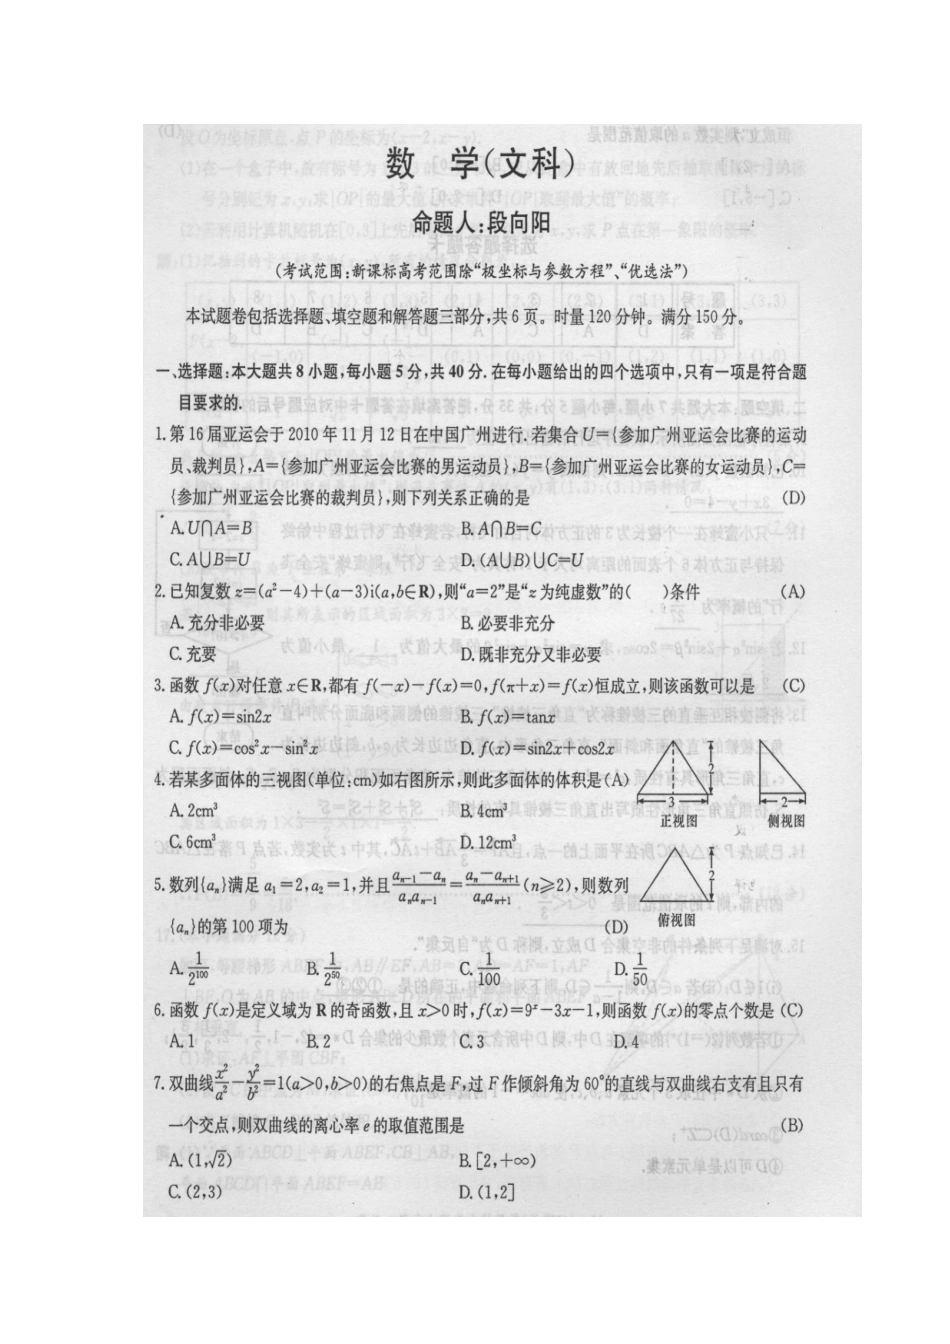 数 学(文科)
命题人:段向阳
(考试范围:新课标高考范围除“极坐标与参数方程”、“优选法”)
本试题卷包括选择题、填空题和解答题三部分,共6页。时量120分钟。满分150分。
一、选择题:本大题共8小题,每小题5分,共40分.在每小题给出的四个选项中,只有一项是符合题
目要求的.
1.第16届亚运会于2010年11月12日在中国广州进行.若集合U={参加广州亚运会比赛的运动
员、裁判员},A={参加广州亚运会比赛的男运动员},B={参加广州亚运会比赛的女运动员},C=
{参加广州亚运会比赛的裁判员},则下列关系正确的是 (D)
A.U∩A=B B.A∩B=C
C.A∪B=U D.(A∪B)∪C=U
2.已知复数z=(a²-4)+(a-3)i(a,b∈R),则“a=2”是“z为纯虚数”的( )条件 (A)
A.充分非必要 B.必要非充分
C.充要 D.既非充分又非必要
3.函数f(x)对任意x∈R,都有f(-x)-f(x)=0,f(π+x)=f(x)恒成立,则该函数可以是 (C)
A.f(x)=sin2x B.f(x)=tanx
C.f(x)=cos²x-sin²x D.f(x)=sin2x+cos2x
4.若某多面体的三视图(单位:cm)如右图所示,则此多面体的体积是(A)
A.2cm³ B.4cm³
C.6cm³ D.12cm³
3 2 2
正视图 侧视图
2
俯视图
5.数列{aₙ}满足a₁=2,a₂=1,并且(aₙ₋₁-aₙ)/(aₙaₙ₋₁)=(aₙ-aₙ₊₁)/(aₙaₙ₊₁)(n≥2),则数列
{aₙ}的第100项为 (D)
A.1/2¹⁰⁰ B.1/2⁵⁰ C.1/100 D.1/50
6.函数f(x)是定义域为R的奇函数,且x>0时,f(x)=9ˣ-3x-1,则函数f(x)的零点个数是 (C)
A.1 B.2 C.3 D.4
7.双曲线x²/a²-y²/b²=1(a>0,b>0)的右焦点是F,过F作倾斜角为60°的直线与双曲线右支有且只有
一个交点,则双曲线的离心率e的取值范围是 (B)
A.(1,√2) B.[2,+∞)
C.(2,3) D.(1,2]